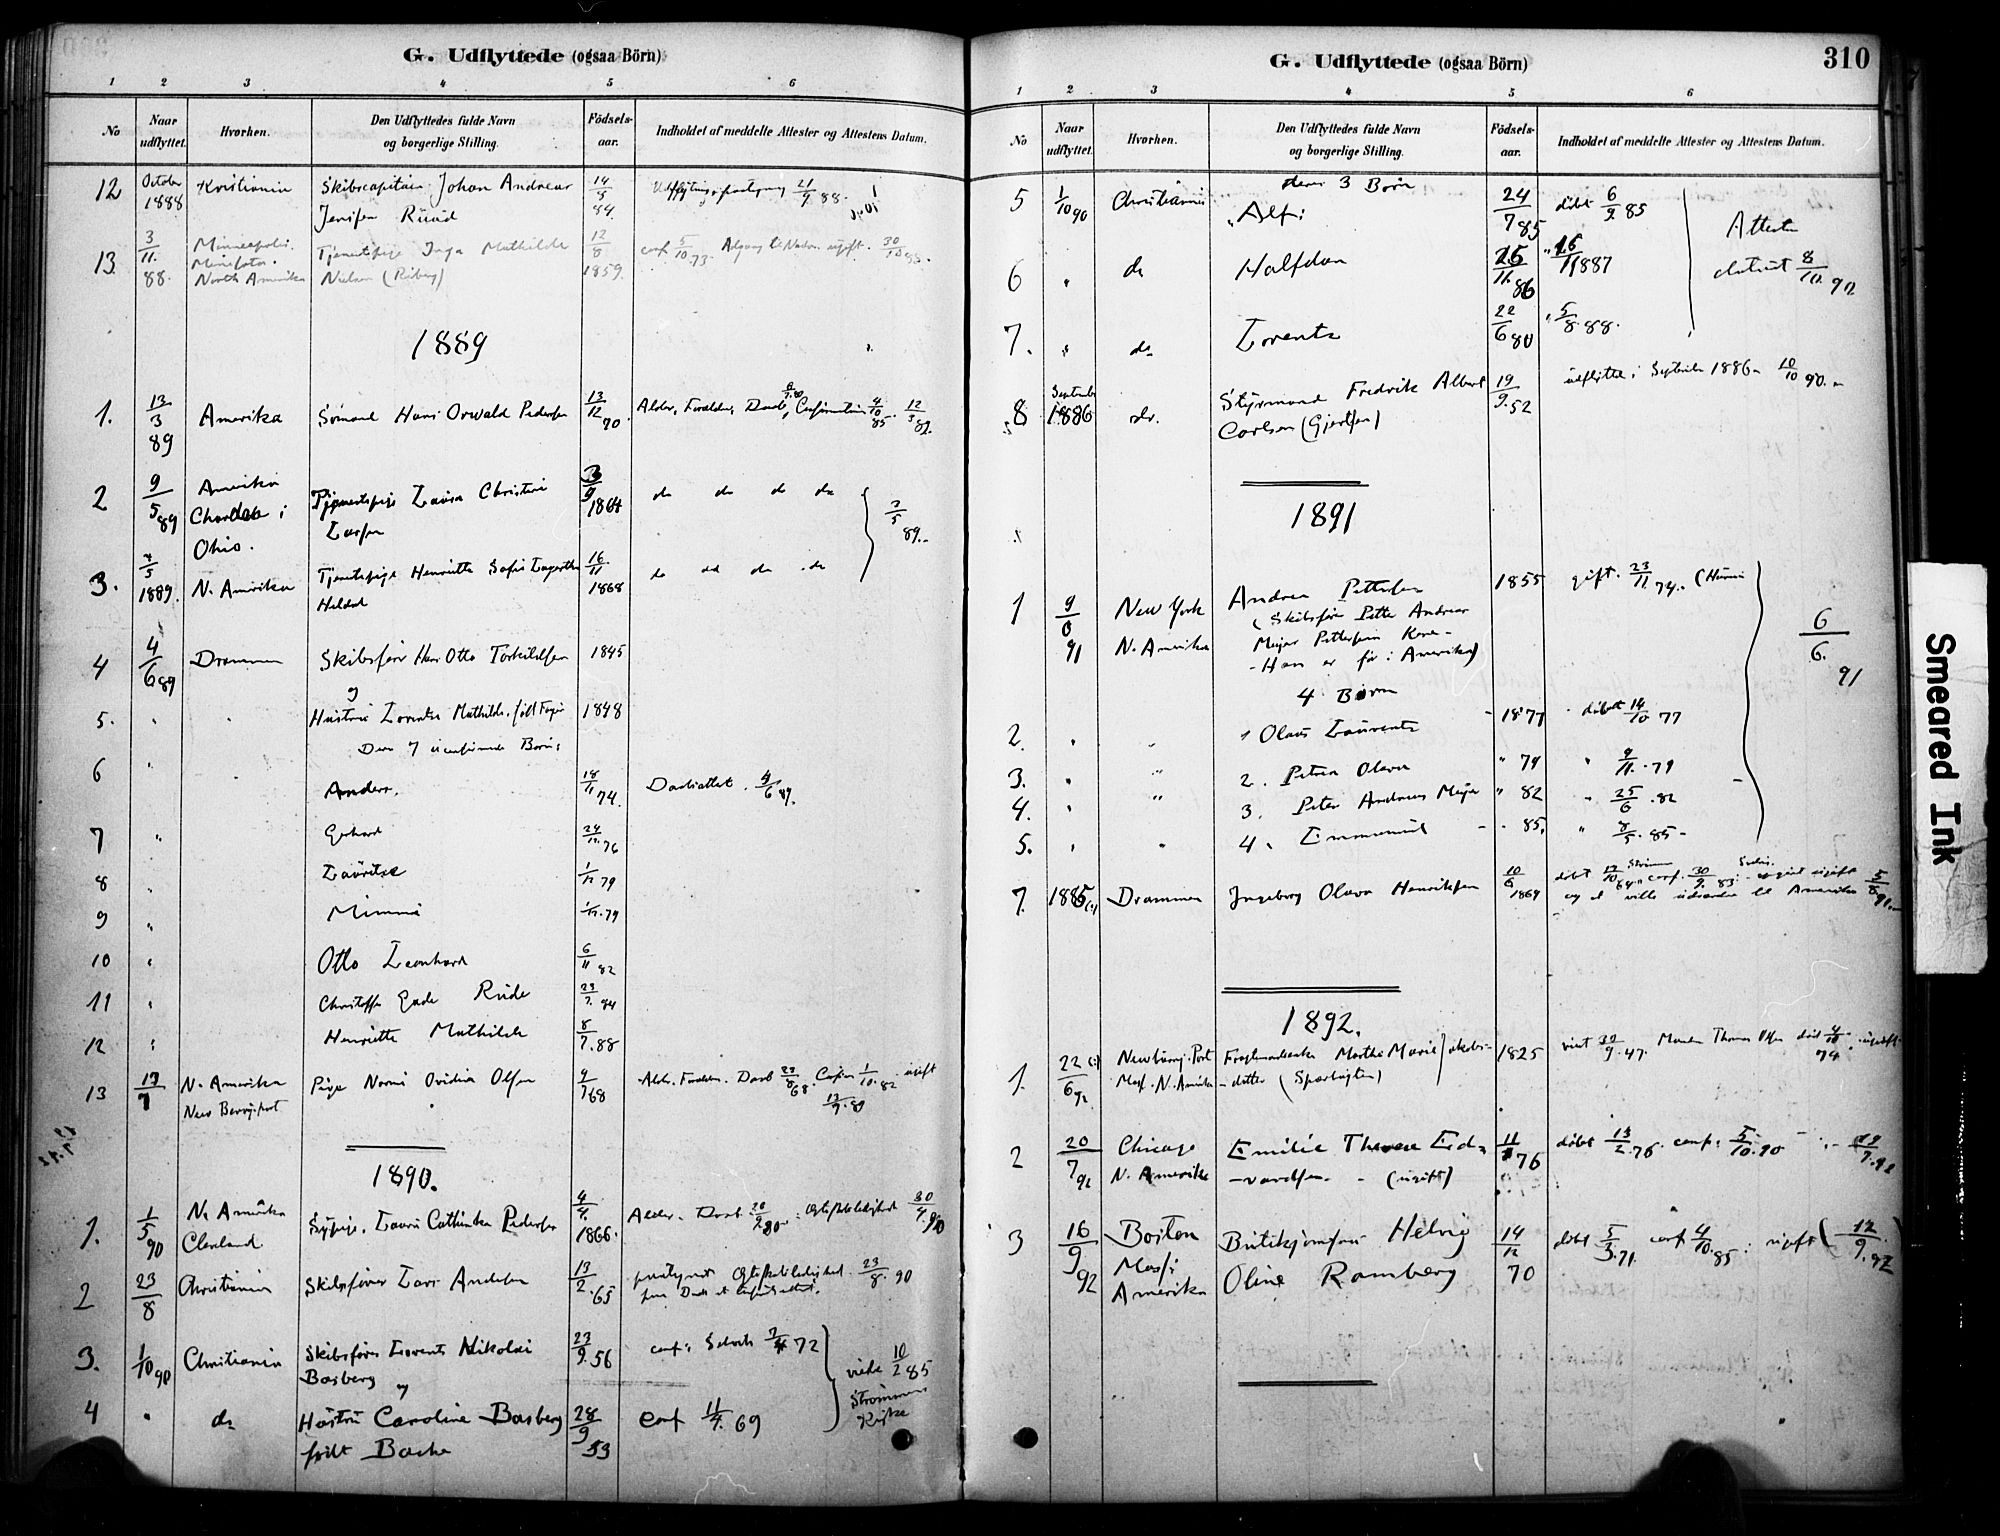 G. Udflyttede (ogsaa Börn)
1 2 3 4 5 6
No
Naar udflyttet.
Hvorhen.
Den Udflyttedes fulde Navn og borgerlige Stilling.
Födsels-aar.
Indholdet af meddelte Attester og Attestens Datum.
12 October 1888 Kristiania Skibscaptain Johan Andreas 14/5 54. 21/9 88.
Jensen Ruud
13. 3/11. 88. Minneapolis. Tjenestepige Inga Mathilde 12/8 1859. conf 5/10.73. ugift. 30/10 88.
Minesota.
North Amerika Nielsen (Riberg)
1889
1. 13/3 89 Amerika Sömand Hans Oswald Pedersen 13/12 70. Alder, Forældre, Daab, Confirmation 4/10 85. 12/3 89.
2 9/5 89 Amerika Tjenestepige Laura Christine 3/9 1864 do do do do
Ohio. Larsen 7/5 89.
3. 7/5 1889. N. Amerika Tjenestepige Henriette Sofie 16/11 1868 do do do do
4 4/6 89 Drammen Skibsfører Hans Otto Torkildsen 1845
og
5. " " Hustru Lorentse Mathilde, født 1848
Deres 7 uconfirmerede Börn:
6 " Anders. 18/11 74. Daabsattest. 4/6 89.
7 " Gerhard 24/11.76
8 " Lauritze 1/12 79
9 " Minni 1/12.79
10 " Otto Leonhard 6/11 82
11 " Christoffer Rude 23/7. 84
12 " Henriette Mathilde 8/7.88
13 13/7 N. Amerika Pige Ovidia Olsen 9/7 68 Alder. Forældre. Daab 23/8 68. Conf 1/10.82 ugift
13/7.89
1890.
1. 1/5 90 N. Amerika Sypige. Cathinka Pedersen 4/4. 1866. Alder. Daab 30/4. 90
Cleveland
2 23/8 Christiania Skibsfører Lars Andersen 13/2.65 23/8. 90
3. 1/10 90 Christiania Skibsfører Lorents Nikolai 23/9.56 conf: Selvik 72
Basberg viede 10/2 85
og Strømmens
4 " do Hustru Caroline Basberg 28/9 53 conf 11/4. 69 Kirke
født Bache
G. Udflyttede (ogsaa Börn)
310
1 2 3 4 5 6
No
Naar udflyttet.
Hvorhen.
Den Udflyttedes fulde Navn og borgerlige Stilling.
Födsels-aar.
Indholdet af meddelte Attester og Attestens Datum.
deres 3 Börn
5 1/10 90 Christiania Alf: 24/7 85 döbt 6/9. 85
Attester
6 " do Halfdan 25/11. 86 " 16/1 1887 dateret 8/10. 90
7. " do Lorents 22/6 80 " 5/8.88.
8 September 1886 do. Styrmand Fredrik Albert 19/9.52 udflyttet i September 1886. 10/10 90.
Carlsen (Gjertsen)
1891
1 9/6 91 New York Andrea Pettersen 1855 gift. 23/11 74.
N. Amerika (Skibsfører Petter Andreas
Meyer Pettersens Kone-
-Han er før i Amerika) 6/6. 91
4 Børn
2. " " 1 Olaus Laurents - 1877 " döbt 14/10 77
3. " " 2. Petrea Olava " 79 " 9/11.79
4. " " 3. Peter Andreas Meyer " 82 " 25/6.82
5. " " 4. Emmanuel " 85. " 8/5. 85
7. 1885 Drammen Ingeborg Olava Henriksen 10/6 1864 döbt conf. 30/9. 83. ugift
og vil udvandre til Amerika 5/8 91.
1892.
1. 22/6 92 Newburyport Marthe Marie Jakobs- 1825 viet 30/9.47. Manden Thomas Olsen død 4/10 74.
Mass. N. Amerika -datter (Sparbygten)
2 20/7 92 Chicago Emilie Therese Ed- 11/1 76 døbt 13/2.76. conf: 5/10.90 19/7.92
N. Amerika -vardsen. (ugift)
3 16/9 92 Boston Butikjomfru Helvig 14/12 70 døbt 5/3.71. conf 4/10.85: ugift (12/9.92
Mass: Oline Ramberg
Amerika
Smeared Ink